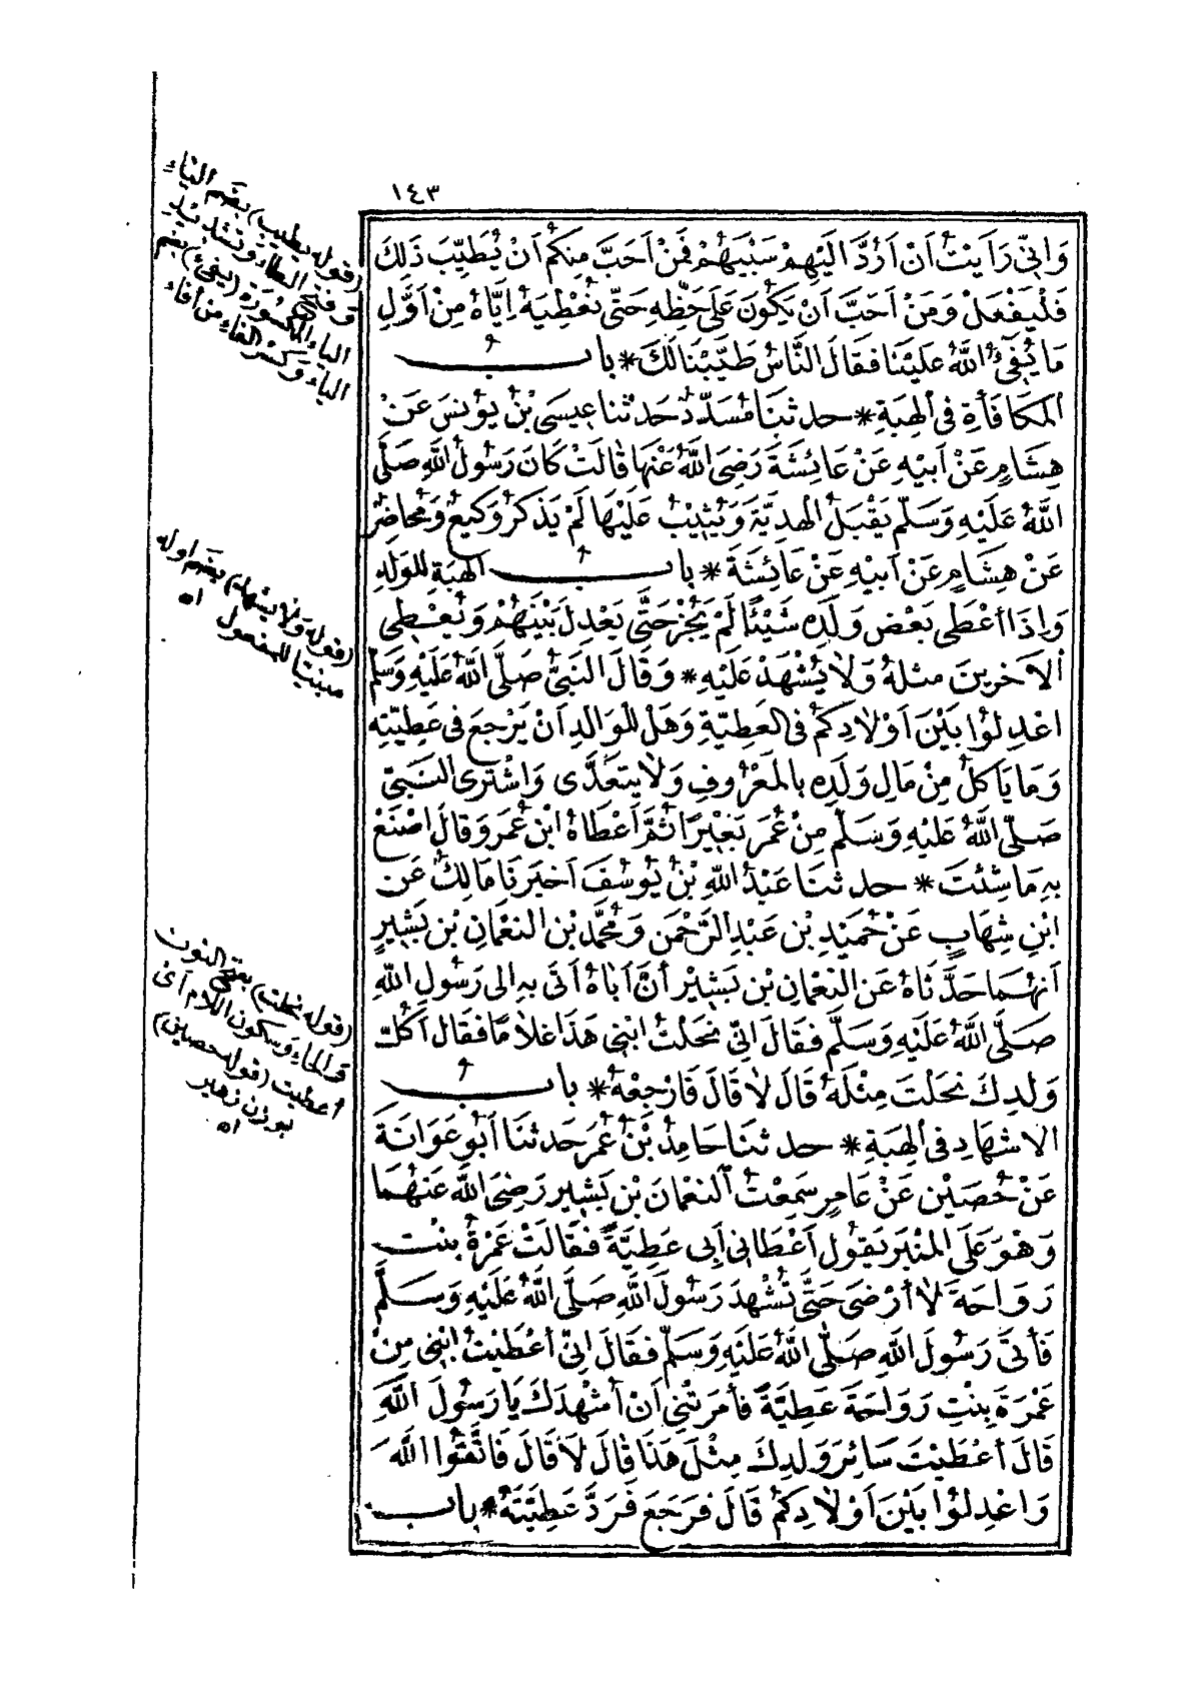 ١٤٣
وَاِنِّى رَاَيْتُ اَنْ اَرُدَّ اِلَيْهِمْ سَبْيَهُمْ فَمَنْ اَحَبَّ مِنْكُمْ اَنْ يُطَيِّبَ ذَلِكَ
فَلْيَفْعَلْ وَمَنْ اَحَبَّ اَنْ يَكُونَ عَلَى حَظِّهِ حَتَّى نُعْطِيَهُ اِيَّاهُ مِنْ اَوَّلِ
مَا يُفِىءُ اللّٰهُ عَلَيْنَا فَقَالَ النَّاسُ طَيَّبْنَا لَكَ * باب
المُكَافَأَةِ فِى اْلهِبَةِ * حدثنَا مُسَدَّدٌ حَدثنا عِيسَى بْنُ يُونُسَ عَنْ
هِشَامٍ عَنْ اَبِيْهِ عَنْ عَائِشَةَ رَضِىَ اللّٰهُ عَنْهَا قَالَتْ كَانَ رَسُولُ اللّٰهِ صَلَّى
اللّٰهُ عَلَيْهِ وَسَلَّمَ يَقْبَلُ الهَدِيَّةَ وَيُثِيْبُ عَلَيْهَا لَمْ يَذْكُرْ وَكِيعٌ وَمُحَاضِرٌ
عَنْ هِشَامٍ عَنْ اَبِيْهِ عَنْ عَائِشَةَ * باب الهِبَةِ لِلْوَلَدِ
وَاِذَا أَعْطَى بَعْضَ وَلَدِهِ شَيْئًا لَمْ يَجُزْ حَتَّى يَعْدِلَ بَيْنَهُمْ وَيُعْطِى
اْلآخَرِينَ مثلَهُ وَلاَ يُشْهَدُ عَلَيْهِ * وَقَالَ النَّبِىُّ صَلَّى اللّٰهُ عَلَيْهِ وَسَلَّمَ
اعْدِلُوْا بَيْنَ اَوْلاَدِكُمْ فِى العَطِيَّةِ وَهَلْ لِلْوَالِدِ اَنْ يَرْجِعَ فِى عَطِيَّتِهِ
وَمَا يَاكُلُ مِنْ مَالِ وَلَدِهِ بِالمَعْرُوفِ وَلاَ يَتَعَدَّى وَاشْتَرَى النَّبِىُّ
صَلَّى اللّٰهُ عَلَيْهِ وَسَلَّمَ مِنْ عُمَرَ بَعِيْرًا ثُمَّ اَعْطَاهُ ابْنَ عُمَرَ وَقَالَ اصْنَعْ
بِهِ مَا شِئْتَ * حدثنَا عَبْدُ اللّٰهِ بْنُ يُوسُفَ اَخبرَنَا مَالِكٌ عَنِ
ابْنِ شِهَابٍ عَنْ حُمَيْدِ بْنِ عَبْدِ الرَّحْمَنِ وَمُحَمَّدِ بْنِ النُّعْمَانِ بْنِ بَشِيْرٍ
اَنهُمَا حَدَّثَاهُ عَنِ النُّعْمَانِ بْنِ بَشِيْرٍ أَنَّ اَبَاهُ اَتَى بِهِ الى رَسُولِ اللّٰهِ
صَلَّى اللّٰهُ عَلَيْهِ وَسَلَّمَ فقَالَ اِنِّى نَحَلْتُ ابْنِى هَذَا غلاَمًا فقَال اَكُلَّ
وَلَدِكَ نَحَلْتَ مِثْلَهُ قَالَ لاَ قَالَ فَارْجِعْهُ * باب
الاِشْهَادِ فِى اْلهِبَةِ * حدثنَا حَامِدُ بْنُ عُمَرَ حَدثنَا أَبُو عَوَانَةَ
عَنْ حُصَيْنٍ عَنْ عَامِرٍ سَمِعْتُ النعْمَانَ بْنَ بَشِيْرٍ رَضِىَ اللّٰهُ عَنْهُمَا
وَهُوَ عَلَى المِنْبَرِ يَقُولُ اَعْطَانِى اَبِى عَطِيَّةً فَقَالَتْ عَمْرَةُ بِنْتُ
رَوَاحَةَ لاَ أَرْضَى حَتَّى تُشْهِدَ رَسُولَ اللّٰهِ صَلَّى اللّٰهُ عَلَيْهِ وَسَلَّمَ
فَأَتَى رَسُولَ اللّٰهِ صَلَّى اللّٰهُ عَلَيْهِ وَسَلَّمَ فَقَالَ اِنِّى أَعْطَيْتُ ابْنِى مِنْ
عَمْرَةَ بِنْتِ رَوَاحَةَ عَطِيَّةً فَأَمَرَتْنِى اَنْ أُشْهِدَكَ يَا رَسُولَ اللّٰهِ
قَالَ أَعْطَيْتَ سَائِرَ وَلَدِكَ مِثْلَ هَذَا قَالَ لاَ قَالَ فَاتَّقُوا اللّٰهَ
وَاعْدِلُوْا بَيْنَ اَوْلاَدِكُمْ قَالَ فَرَجَعَ فَرَدَّ عَطِيَّتَهُ * باب
(قوله يطيب) بضم الياء
وفتح الطاء وتشديد
الياء المكسورة (يفئ) بضم
الياء وكسر الفاء من أفاء
(قوله ولا يشهد) بضم اوله
مبنيا للمفعول اه
(قوله نحلت) بفتح النون
والحاء وسكون اللام أى
أعطيت (قوله حصين)
بوزن زهير
اه